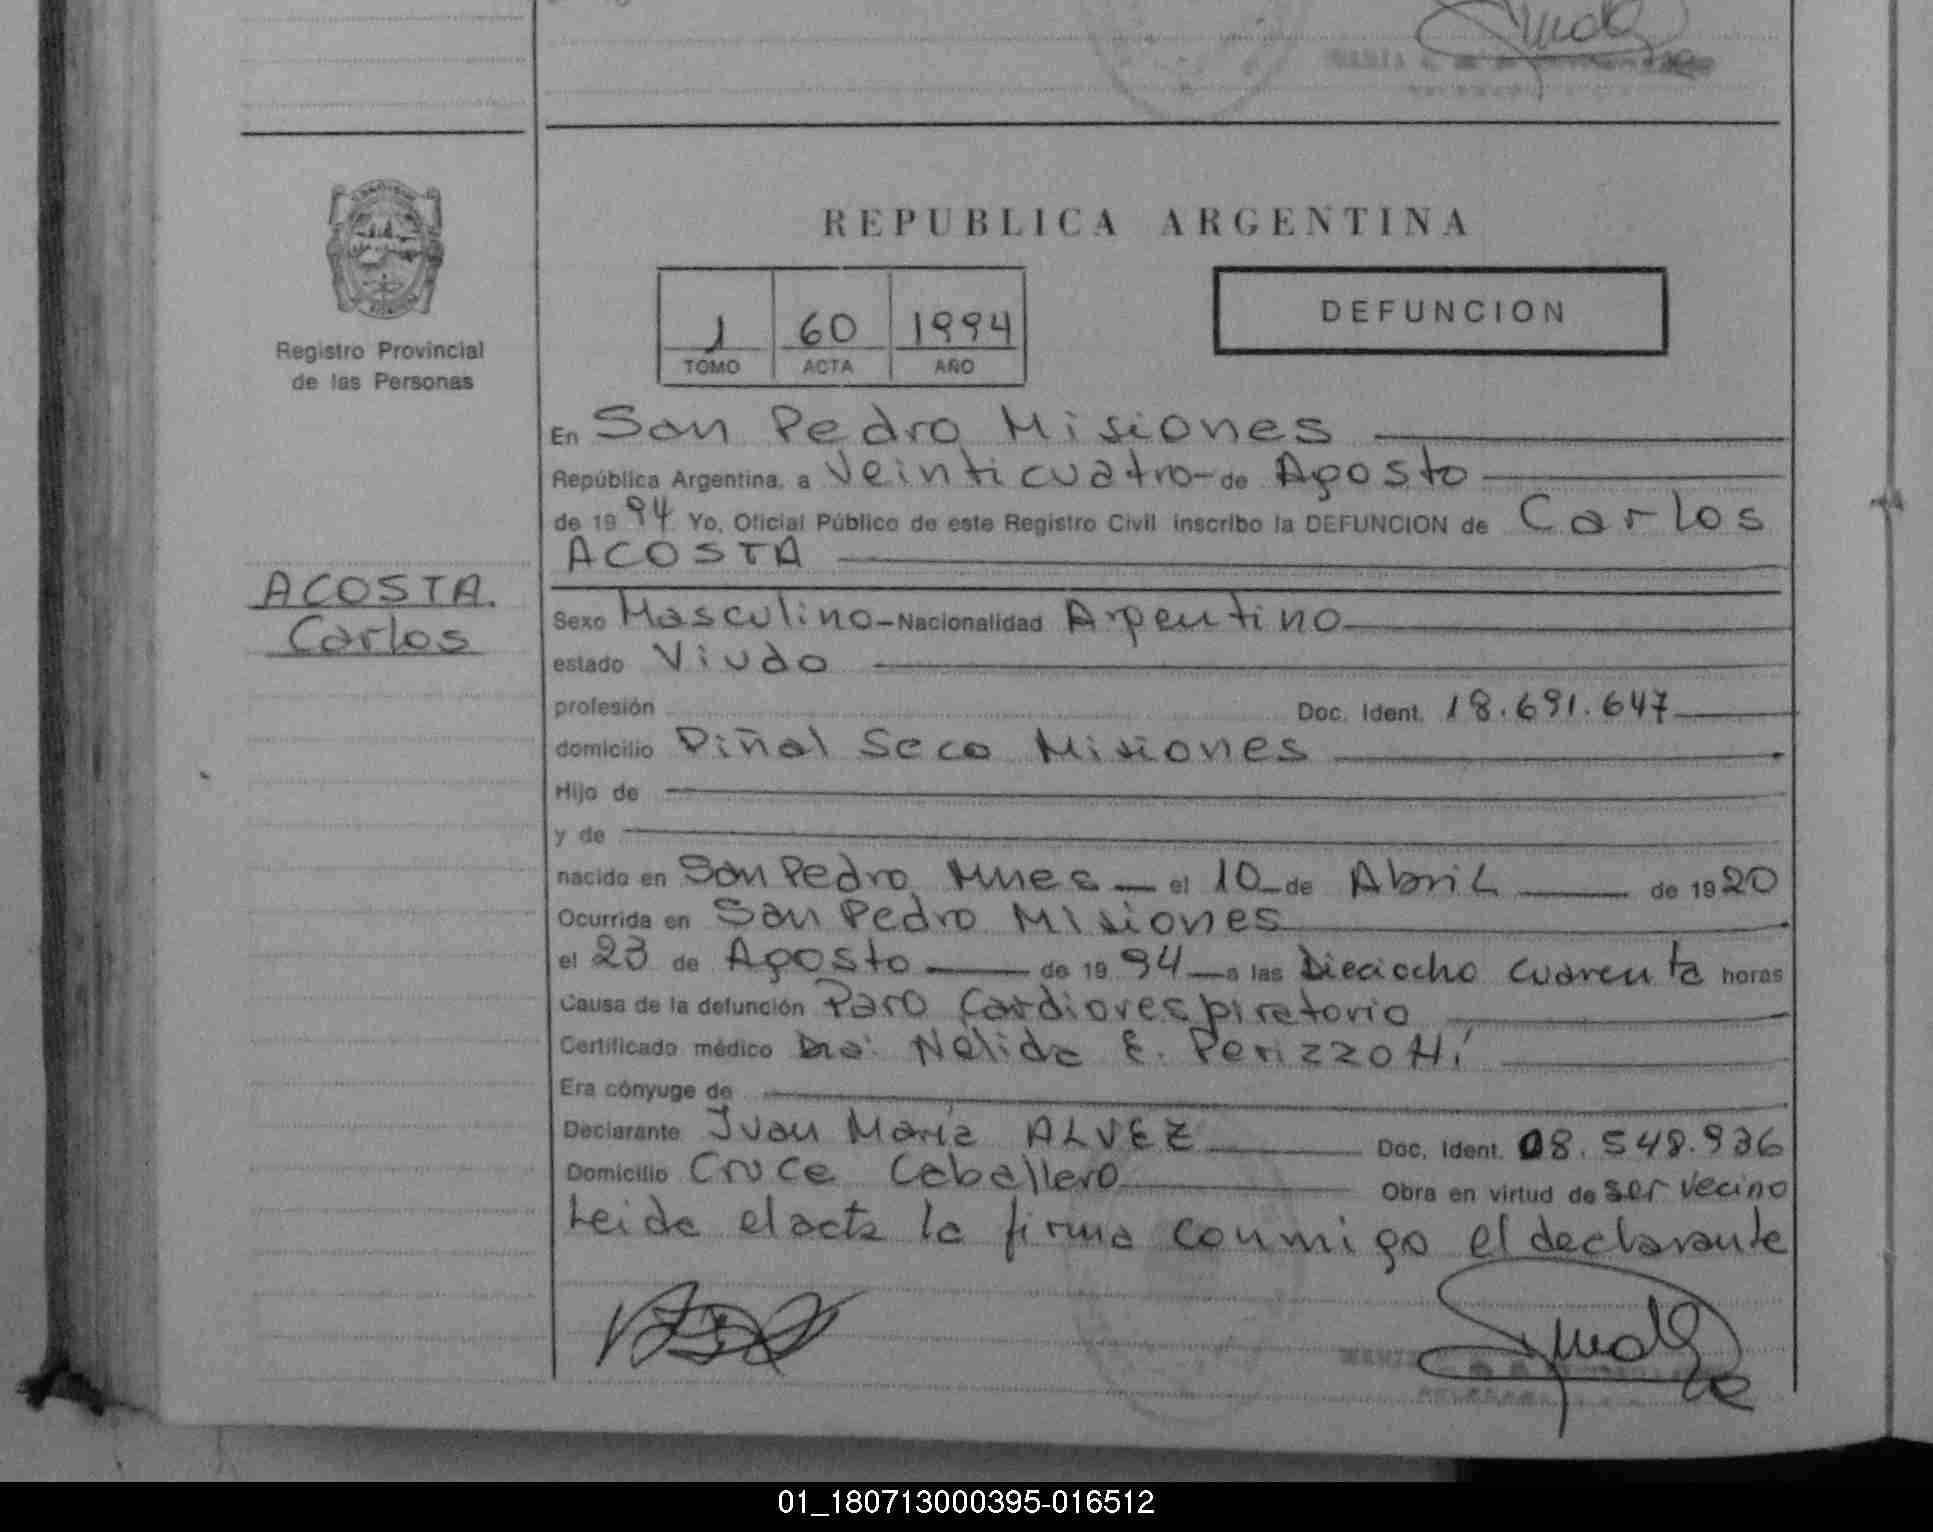 REPUBLICA ARGENTINA
1 60 1994
TOMO ACTA AÑO
DEFUNCION
Registro Provincial
de las Personas
ACOSTA.
Carlos
En San Pedro Misiones
República Argentina, a Veinticuatro de Agosto
de 1994 Yo, Oficial Público de este Registro Civil inscribo la DEFUNCION de Carlos
ACOSTA
Sexo Masculino - Nacionalidad Argentino
estado Viudo
profesión Doc. Ident. 18.691.647
domicilio Piñal Seco Misiones
Hijo de
y de
nacido en San Pedro Mnes el 10 de Abril de 1920
Ocurrida en San Pedro Misiones
el 23 de Agosto de 1994 a las Dieciocho cuarenta horas
Causa de la defunción Paro Cardiorespiratorio
Certificado médico Dra: Nelida E. Perizzotti
Era cónyuge de
Declarante Juan María ALVEZ Doc. Ident. 08.548.936
Domicilio Cruce Caballero Obra en virtud de ser vecino
Leida el acta la firma conmigo el declarante
01_180713000395-016512